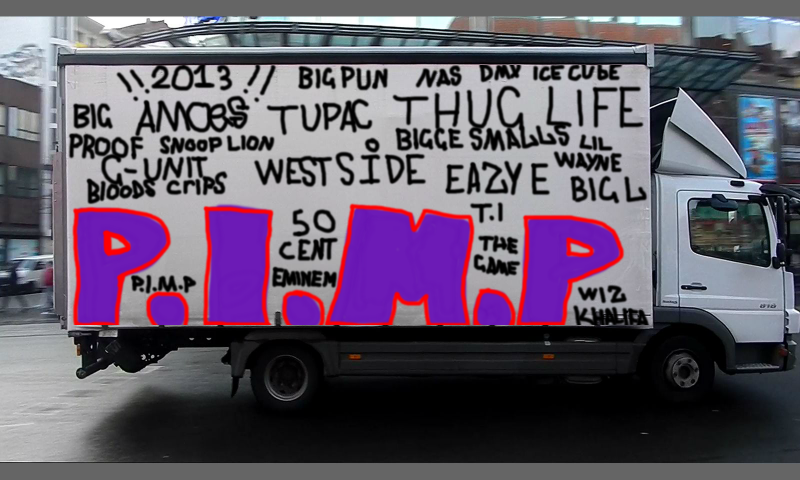 !! 2013 !! BIG PUN NAS DMX ICE CUBE
BIG AMOBS TUPAC THUG LIFE
PROOF SNOOP LION BIGGE SMALLS LIL WAYNE
G-UNIT WESTSIDE EAZY E BIG L
BLOODS CRIPS
P.I.M.P
50 CENT
T.I
THE GAME
EMINEM
P.I.M.P
WIZ KHALIFA
816